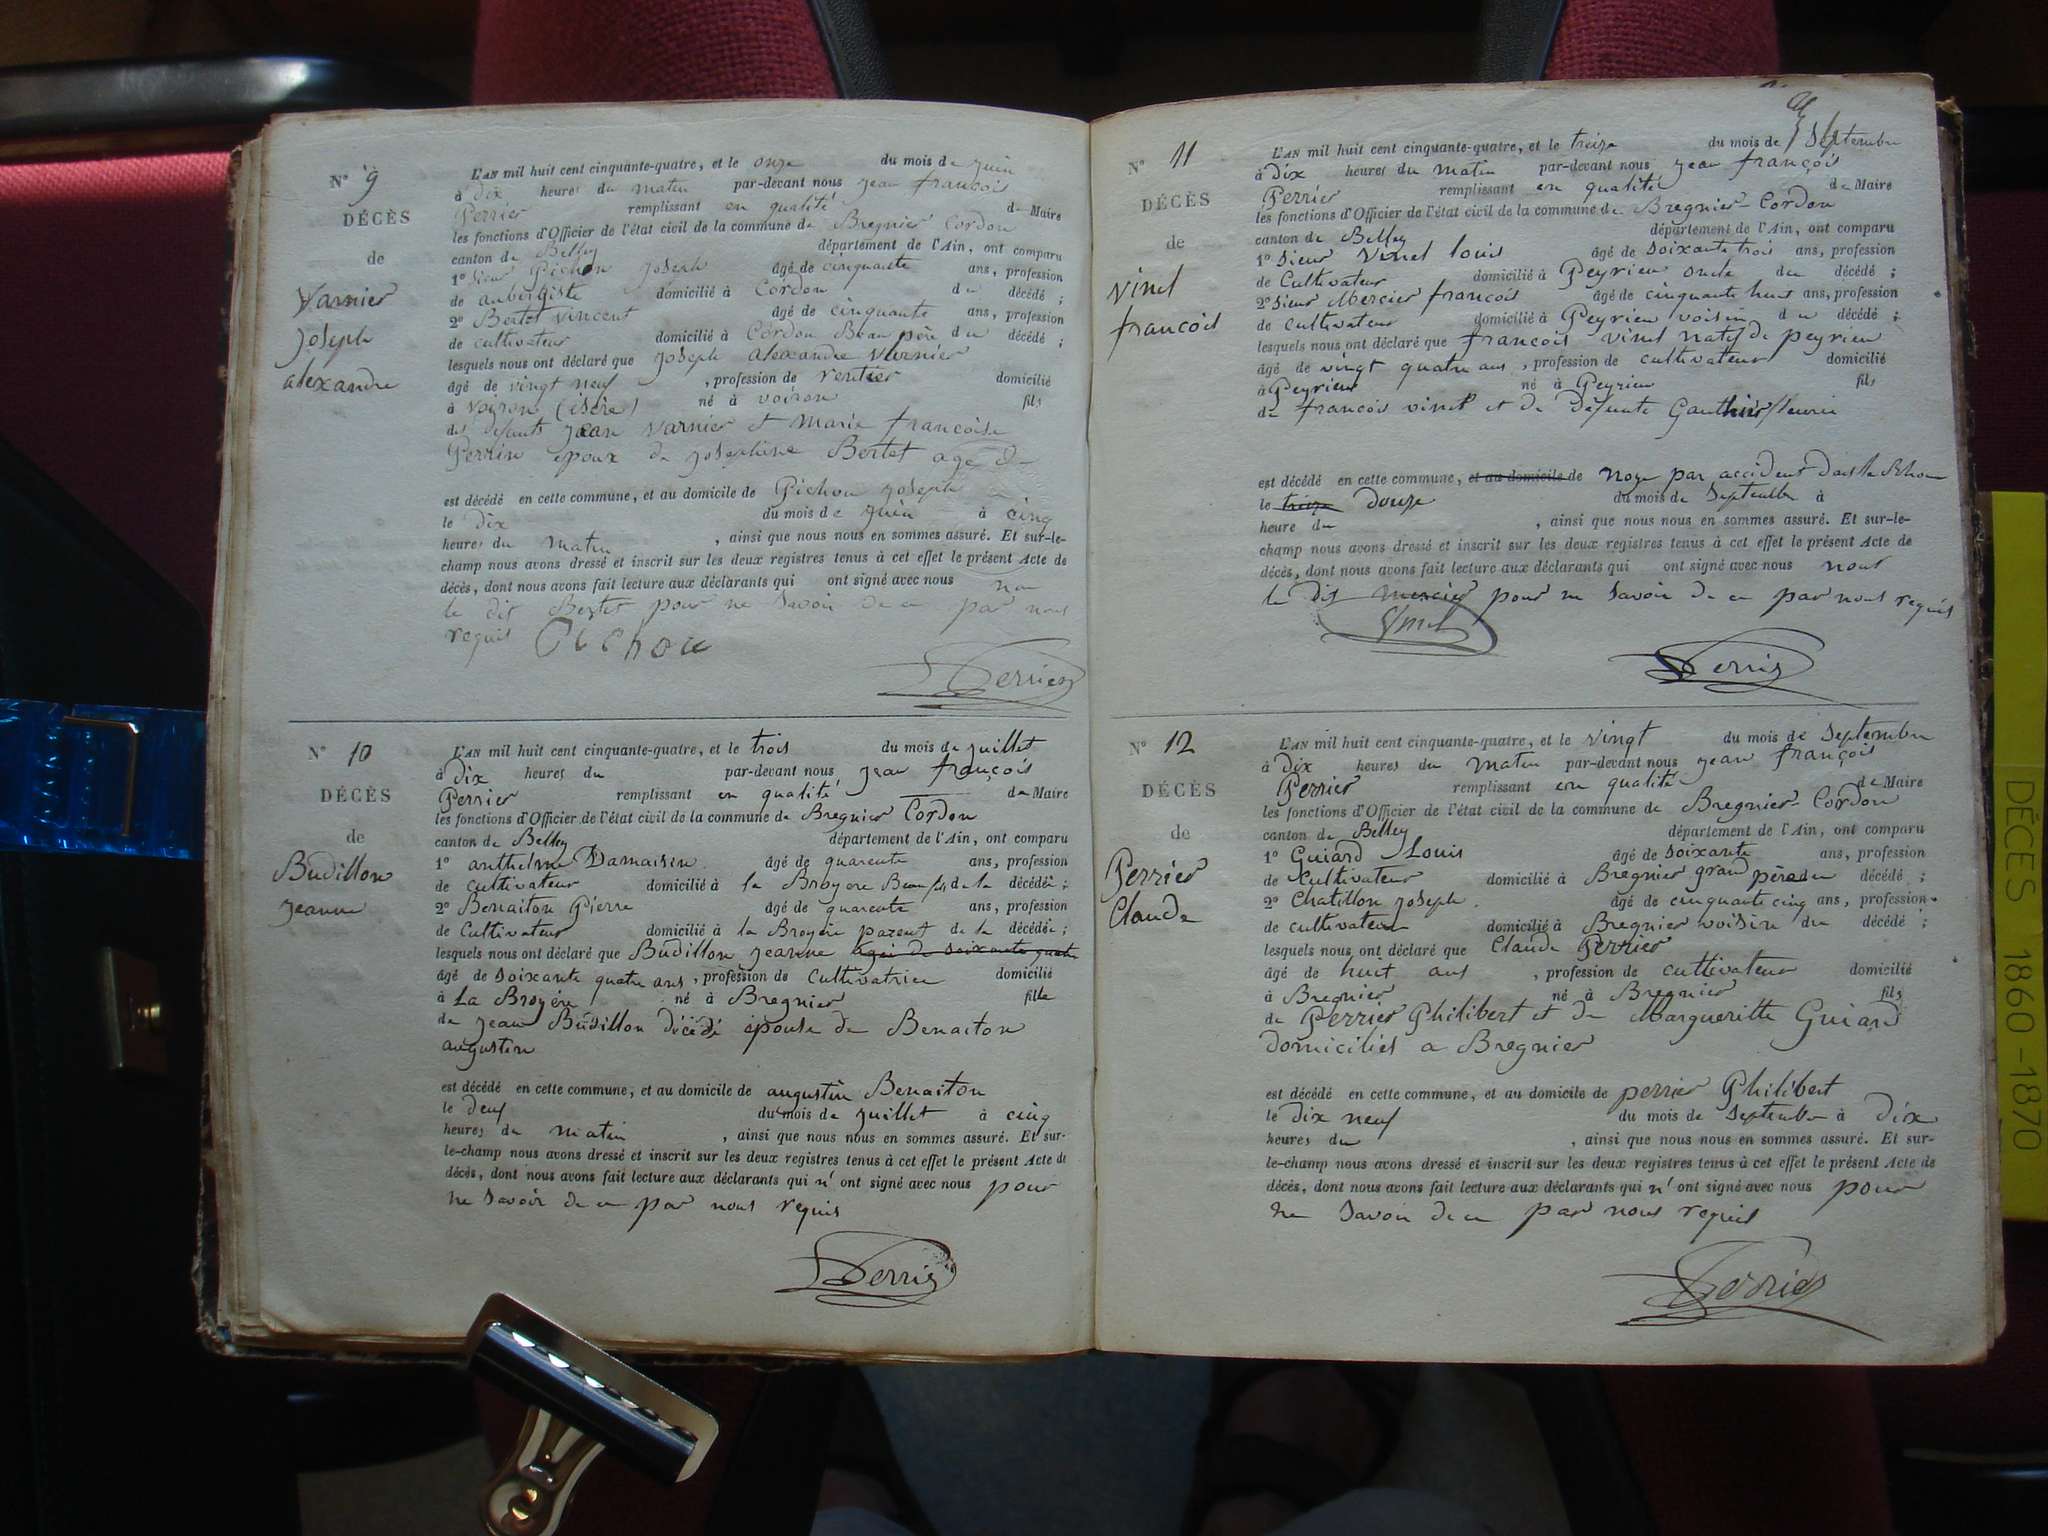 N° 9
DÉCÈS
de
Varnier
Joseph
alexandre
L'AN mil huit cent cinquante-quatre, et le onze du mois de juin
à dix heures du matin par-devant nous jean françois
Perrier remplissant en qualité de Maire
les fonctions d'Officier de l'état civil de la commune de Bregnier Cordon
canton de Belley département de l'Ain, ont comparu
1° sieur Pichon joseph âgé de cinquante ans, profession
de aubergiste domicilié à Cordon du décédé ;
2° Bertet vincent âgé de cinquante ans, profession
de cultivateur domicilié à Cordon Beau père du décédé ;
lesquels nous ont déclaré que joseph alexandre Varnier
âgé de vingt neuf , profession de rentier domicilié
à voiron (isère) né à voiron fils
des défunts jean varnier et marie françoise
Perrin époux de josephine Bertet agé de
est décédé en cette commune, et au domicile de Pichon joseph
le dix du mois de juin à cinq
heures du matin , ainsi que nous nous en sommes assuré. Et sur-le-
champ nous avons dressé et inscrit sur les deux registres tenus à cet effet le présent Acte de
décès, dont nous avons fait lecture aux déclarants qui ont signé avec nous non
le dit Bertet pour ne savoir de ce par nous
requis Pichon
Perrier
N° 10
DÉCÈS
de
Budillon
jeanne
L'AN mil huit cent cinquante-quatre, et le trois du mois de juillet
à Dix heures du par-devant nous jean françois
Perrier remplissant en qualité de Maire
les fonctions d'Officier de l'état civil de la commune de Bregnier Cordon
canton de Belley département de l'Ain, ont comparu
1° anthelme Damaisin âgé de quarente ans, profession
de cultivateur domicilié à la Broyere Beau fils de la décédée ;
2° Benaiton Pierre âgé de quarente ans, profession
de Cultivateur domicilié à la Broyere parent de la décédée ;
lesquels nous ont déclaré que Budillon jeanne agée de soixante quatre
âgé de soixante quatre ans , profession de Cultivatrice domicilié
à La Broyère né à Bregnier fille
de jean Budillon décédé épouse de Benaiton
augustin
est décédé en cette commune, et au domicile de augustin Benaiton
le deux du mois de juillet à cinq
heures du matin , ainsi que nous nous en sommes assuré. Et sur-
le-champ nous avons dressé et inscrit sur les deux registres tenus à cet effet le présent Acte de
décès, dont nous avons fait lecture aux déclarants qui n' ont signé avec nous pour
ne savoir de ce par nous requis
Perrier
N° 11
DÉCÈS
de
vinet
francois
L'AN mil huit cent cinquante-quatre, et le treize du mois de Septembre
à dix heures du matin par-devant nous jean françois
Perrier remplissant en qualité de Maire
les fonctions d'Officier de l'état civil de la commune de Bregnier-Cordon
canton de Belley département de l'Ain, ont comparu
1° sieur vinet louis âgé de soixante trois ans, profession
de Cultivateur domicilié à Peyrieu oncle du décédé ;
2° sieur Mercier françois âgé de cinquante huit ans, profession
de cultivateur domicilié à Peyrieu voisin du décédé ;
lesquels nous ont déclaré que françois vinet natif de peyrieu
âgé de vingt quatre ans , profession de cultivateur domicilié
à Peyrieu né à Peyrieu fils
de francois vinet et de défunte Gauthier fleurie
est décédé en cette commune, et au domicile de noyé par accident dans le Rhone
le treize douze du mois de Septembre à
heure du , ainsi que nous nous en sommes assuré. Et sur-le-
champ nous avons dressé et inscrit sur les deux registres tenus à cet effet le présent Acte de
décès, dont nous avons fait lecture aux déclarants qui ont signé avec nous nous
le dit mercier pour ne savoir de ce par nous requis
Vinet
Perrier
N° 12
DÉCÈS
de
Perrier
Claude
L'AN mil huit cent cinquante-quatre, et le vingt du mois de Septembre
à Dix heures du matin par-devant nous jean françois
Perrier remplissant en qualité de Maire
les fonctions d'Officier de l'état civil de la commune de Bregnier-Cordon
canton de Belley département de l'Ain, ont comparu
1° Guiard Louis âgé de soixante ans, profession
de Cultivateur domicilié à Bregnier grand père du décédé ;
2° Chatillon joseph âgé de cinquante cinq ans, profession
de cultivateur domicilié à Bregnier voisin du décédé ;
lesquels nous ont déclaré que Claude Perrier
âgé de huit ans , profession de cultivateur domicilié
à Bregnier né à Bregnier fils
de Perrier Philibert et de Margueritte Guiard
domiciliés a Bregnier
est décédé en cette commune, et au domicile de perrier Philibert
le dix neuf du mois de Septembre à dix
heures du , ainsi que nous nous en sommes assuré. Et sur-
le-champ nous avons dressé et inscrit sur les deux registres tenus à cet effet le présent Acte de
décès, dont nous avons fait lecture aux déclarants qui n' ont signé avec nous pour
ne savoir de ce par nous requis
Perrier
DÉCES 1860-1870